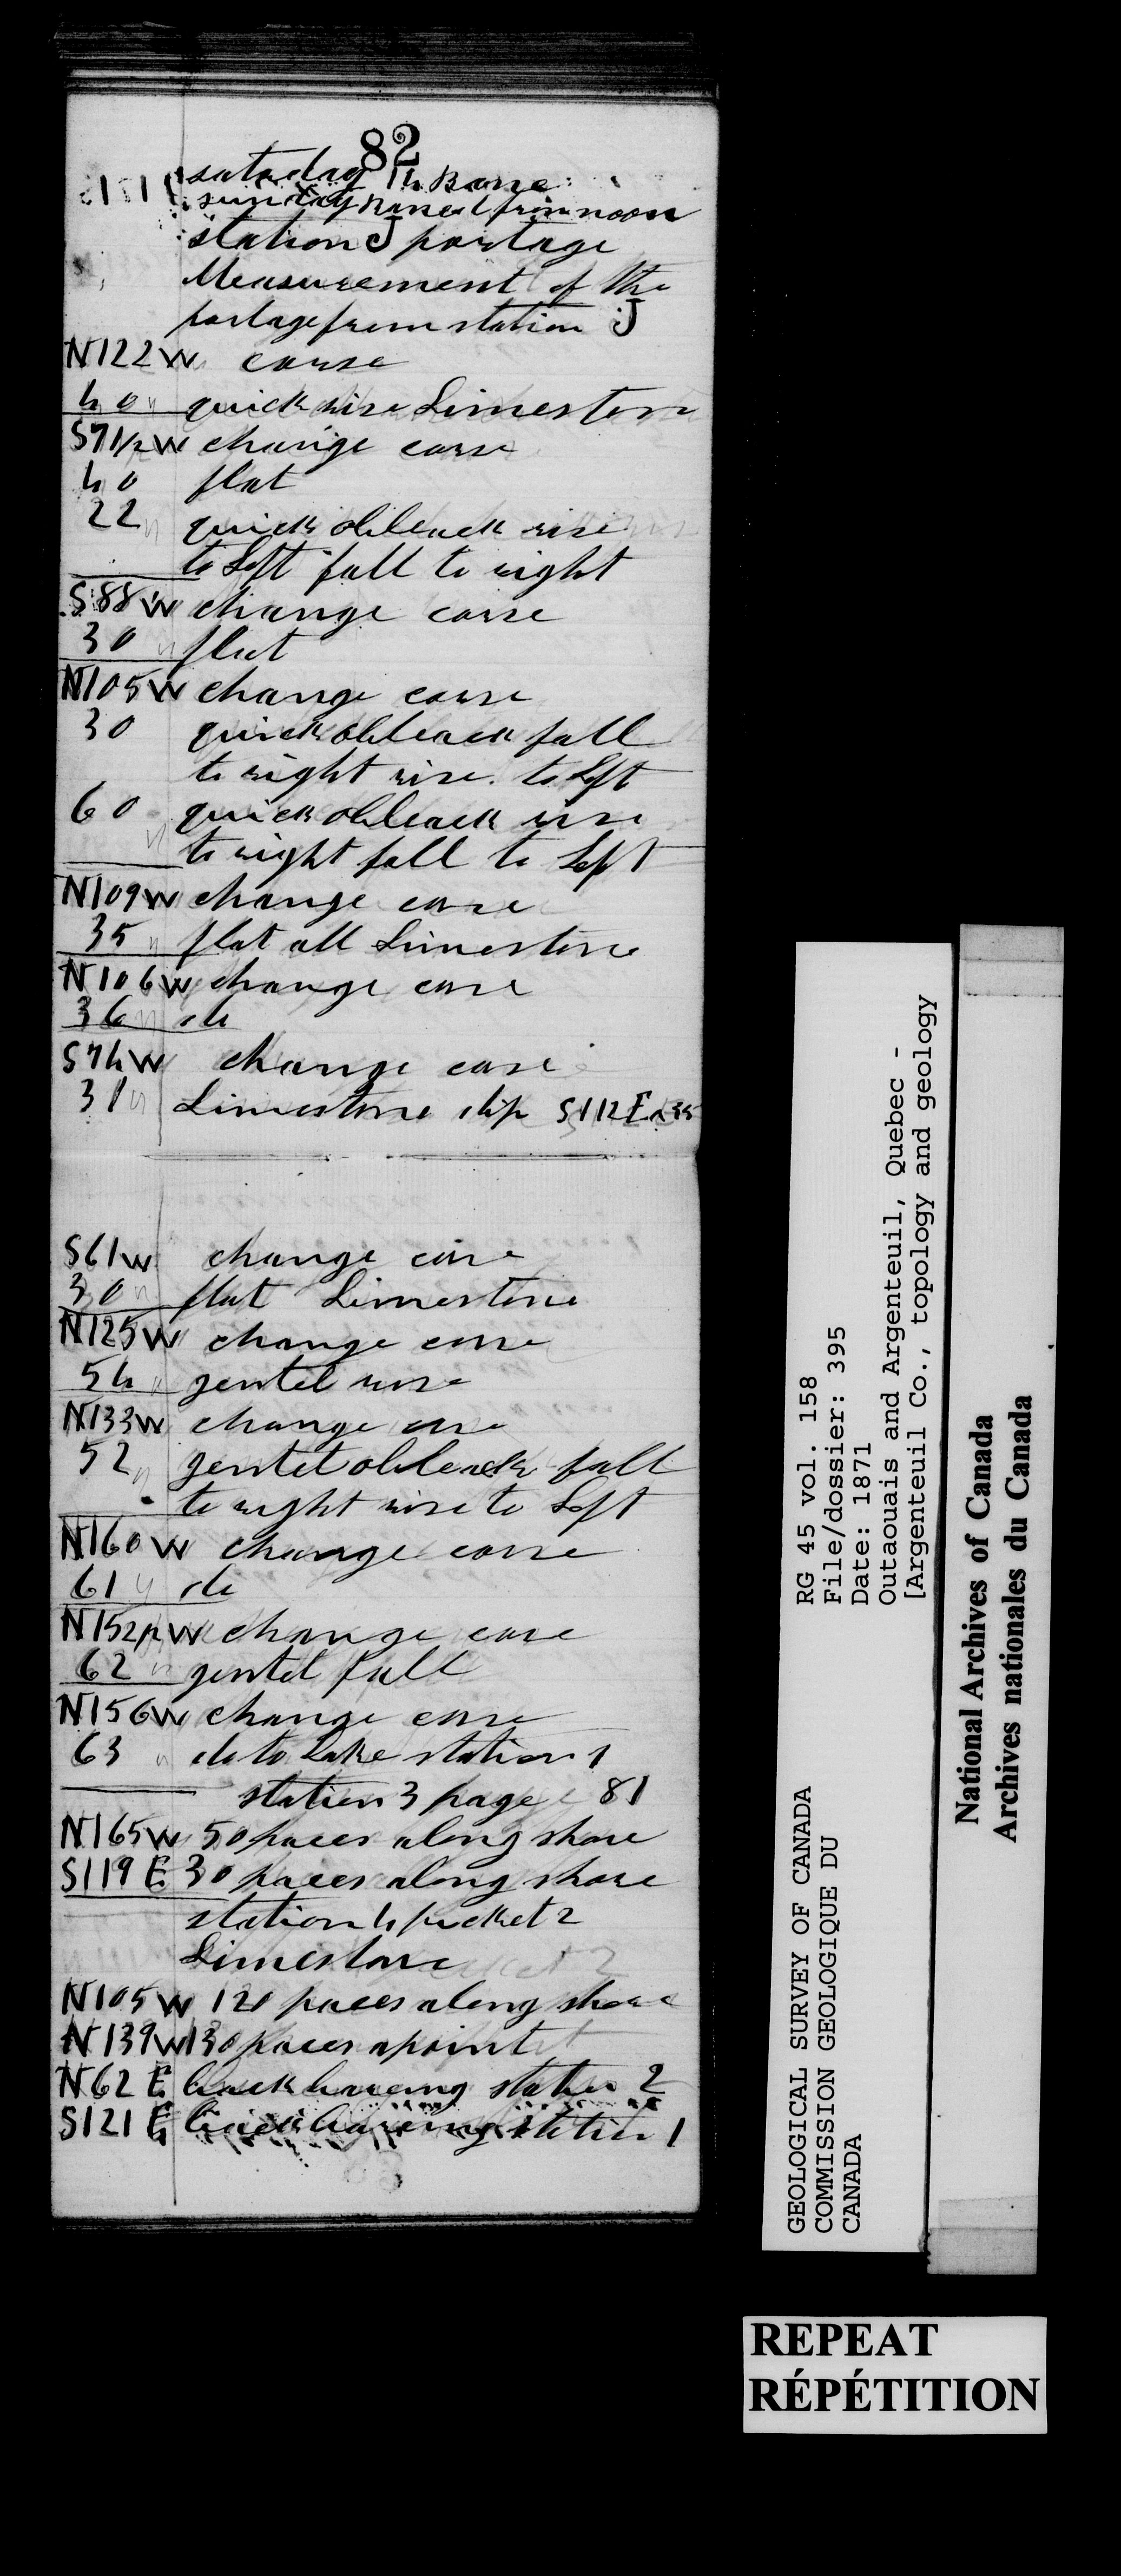 82
saturday 14 Rane
sunday Raned from noon
station J portage
Measurement of the
portage from station J
N122W corse
40 quick rise Limestone
S71½W change corse
40 flat
22 quick obleack rise
to Left fall to right
S88W change corse
30 flat
N105W change corse
30 quick obleack fall
to right rise to Left
60 quick obleack rise
to right fall to Left
N109W change corse
35 flat all Limestone
N106W change corse
36 do
S74W change corse
31 Limestone dip S112E
S61W change corse
30 flat Limestone
N125W change corse
54 gentel rise
N133W change corse
52 gentel obleack fall
to right rise to Left
N160W change corse
61 do
N152½W change corse
62 gentel fall
N156W change corse
63 do to Lake station 1
station 3 page 81
N165W 50 paces along shore
S119E 30 paces along shore
station 4 picket 2
Limestone
N105W 120 paces along shore
N139W 130 paces a point
N62E back bareing station 2
S121E back bareing station 1
GEOLOGICAL SURVEY OF CANADA
COMMISSION GEOLOGIQUE DU
CANADA
RG 45 vol. 158
File/dossier: 395
Date: 1871
Outaouais and Argenteuil, Quebec -
[Argenteuil Co., topology and geology
National Archives of Canada
Archives nationales du Canada
REPEAT
RÉPÉTITION